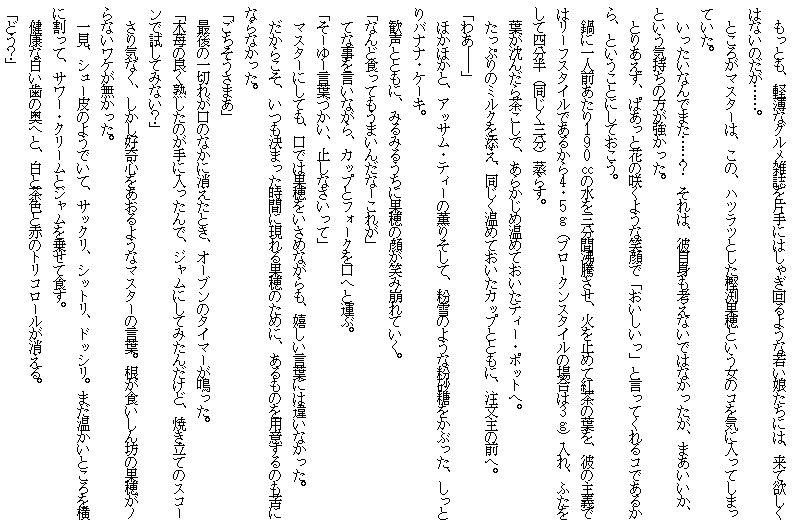 もっとも、軽薄なグルメ雑誌を片手にはしゃぎ回るような若い娘たちには、来て欲しく
はないのだが……。
ところがマスターは、この、ハツラツとした樫渕果穂という女のコを気に入ってしまっ
ていた。
いったいなんでまた……？　それは、彼自身も考えないではなかったが、まあいいか、
という気持ちの方が強かった。
とりあえず、ぱあっと花の咲くような笑顔で「おいしいっ」と言ってくれるコであるか
ら、ということにしておこう。
鍋に一人前あたり１９０㏄の水を三分間沸騰させ、火を止めて紅茶の葉を、彼の主義で
はリーフスタイルであるから４・５ｇ（ブロークンスタイルの場合は３ｇ）入れ、ふたを
して四分半（同じく三分）蒸らす。
葉が沈んだら茶こしで、あらかじめ温めておいたティー・ポットへ。
たっぷりのミルクを添え、同じく温めておいたカップとともに、注文主の前へ。
「わあ――」
ほかほかと、アッサム・ティーの薫りそして、粉雪のような粉砂糖をかぶった、しっと
りバナナ・ケーキ。
歓声とともに、みるみるうちに果穂の顔が笑み崩れていく。
「なんど食ってもうまいんだなーこれが」
てな事を言いながら、カップとフォークを口へと運ぶ。
「そーゆー言葉づかい、止しなさいって」
マスターにしても、口では果穂をいさめながらも、嬉しい言葉には違いなかった。
だからこそ、いつも決まった時間に現れる果穂のために、あるものを用意するのも苦に
ならなかった。
「ごちそうさまあ」
最後の一切れが口のなかに消えたとき、オーブンのタイマーが鳴った。
「木苺の良く熟したのが手に入ったんで、ジャムにしてみたんだけど、焼き立てのスコー
ンで試してみない？」
さり気なく、しかし好奇心をあおるようなマスターの言葉。根が食いしん坊の果穂がノ
らないワケが無かった。
一見、シュー皮のようでいて、サックリ、シットリ、ドッシリ。まだ温かいところを横
に割って、サワー・クリームとジャムを乗せて食す。
健康な白い歯の奥へと、白と茶色と赤のトリコロールが消える。
「どう？」